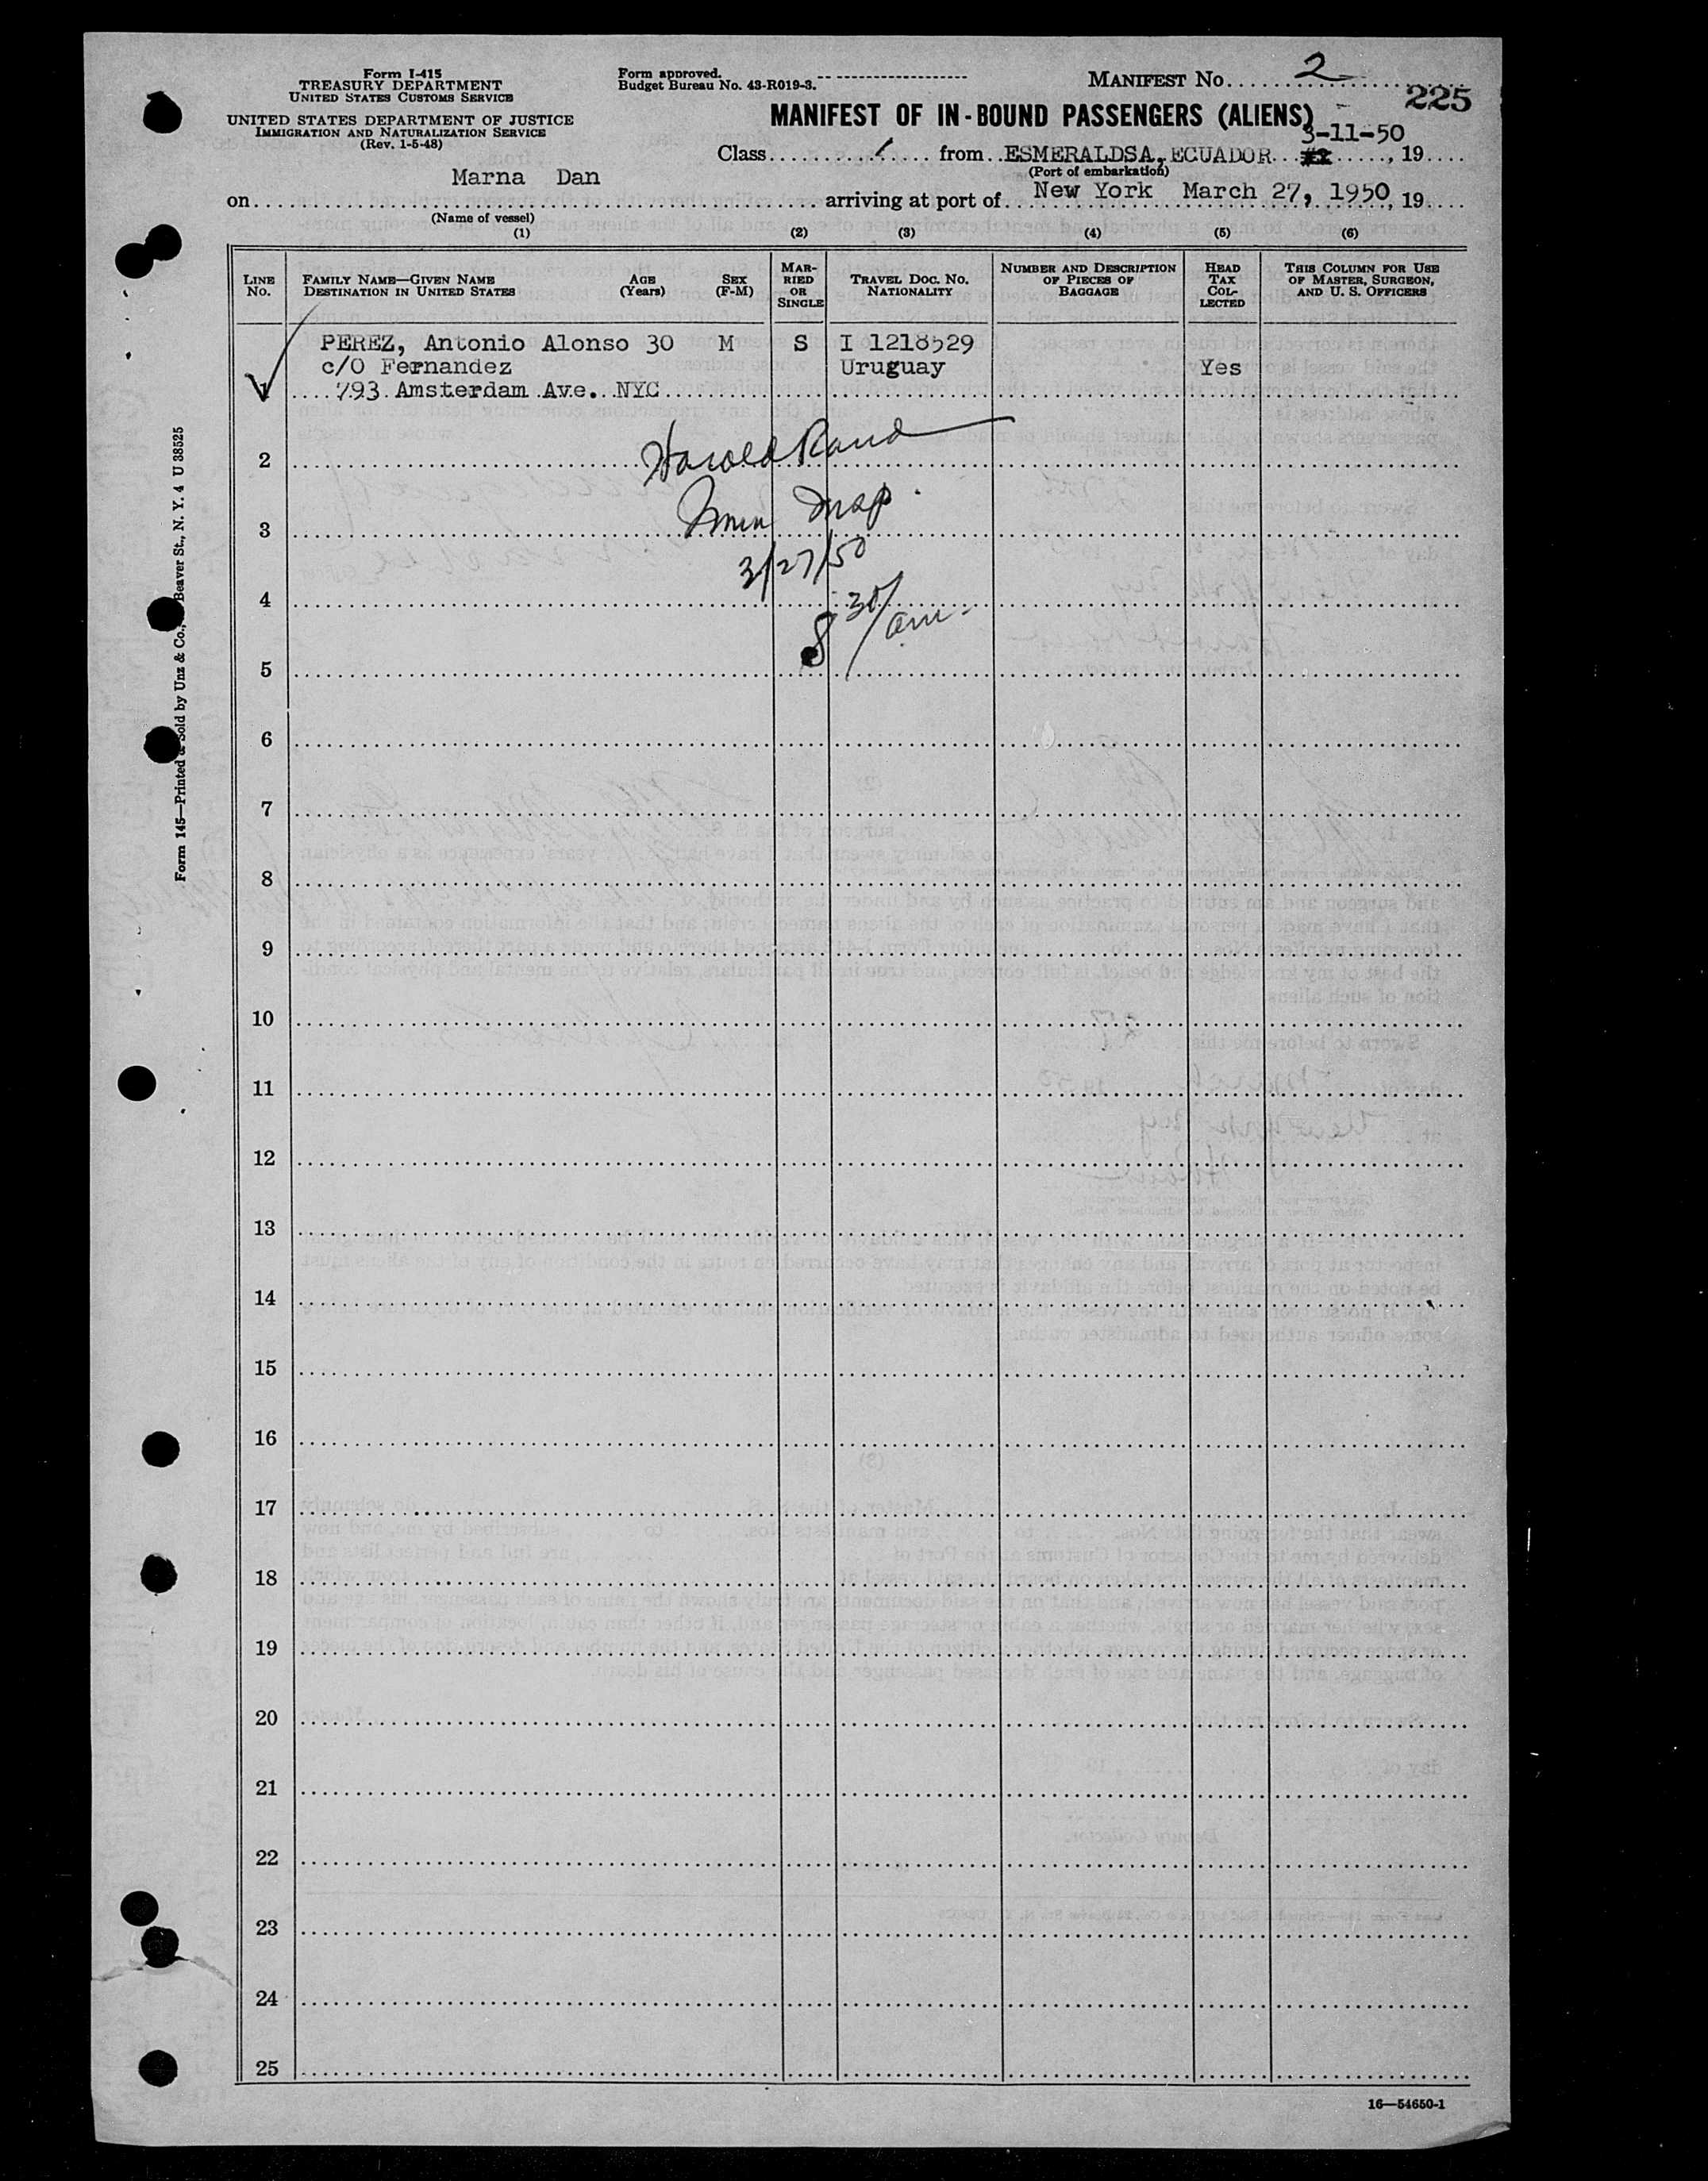 Form I-415
TREASURY DEPARTMENT
UNITED STATES CUSTOMS SERVICE
UNITED STATES DEPARTMENT OF JUSTICE
IMMIGRATION AND NATURALIZATION SERVICE
(Rev. 1-5-48)
Form approved.
Budget Bureau No. 43-R019-3.
MANIFEST No. 2
225
MANIFEST OF IN-BOUND PASSENGERS (ALIENS)
3-11-50
Class 1 from ESMERALDSA, ECUADOR , 19
(Port of embarkation)
on Marna Dan arriving at port of New York March 27, 1950, 19
(Name of vessel)
(1) (2) (3) (4) (5) (6)
LINE No.
FAMILY NAME—GIVEN NAME
DESTINATION IN UNITED STATES
AGE (Years)
SEX (F-M)
MARRIED OR SINGLE
TRAVEL DOC. NO.
NATIONALITY
NUMBER AND DESCRIPTION OF PIECES OF BAGGAGE
HEAD TAX COLLECTED
THIS COLUMN FOR USE OF MASTER, SURGEON, AND U. S. OFFICERS
PEREZ, Antonio Alonso 30 M S I 1218529
c/O Fernandez Uruguay Yes
1 793 Amsterdam Ave. NYC
Harold Rand
2
Imm Insp.
3
3/27/50
4
8 30/am
5
6
7
8
9
10
11
12
13
14
15
16
17
18
19
20
21
22
23
24
25
16—54650-1
Form 145—Printed & Sold by Unz & Co., Beaver St., N. Y. 4 U 38525